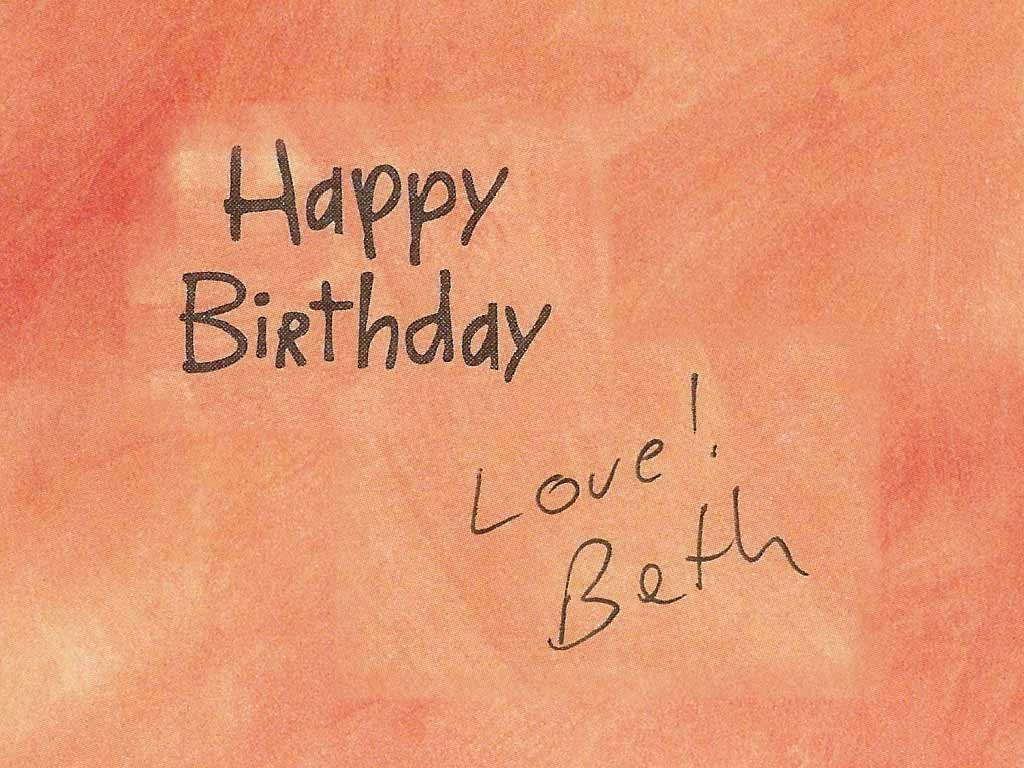 Happy
Birthday
Love!
Beth